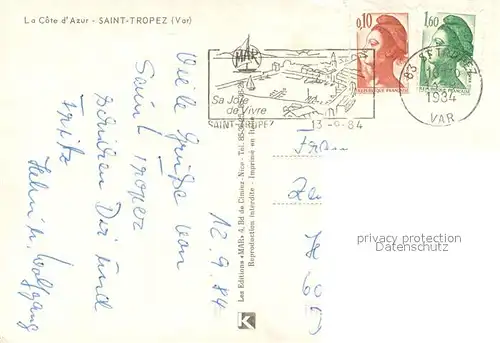 La Côte d'Azur - SAINT-TROPEZ (Var)
0,10
1,60
REPUBLIQUE FRANÇAISE
MAR
Sa Joie
de Vivre
SAINT-TROPEZ
13-9-84
83 ST TROPEZ
1984
VAR
12.9.84
Viele Grüße von
Saint Tropez
senden Dir und
Fritz
Helm u. Wolfgang
Les Editions «MAR» 4, Bd de Cimiez - Nice - Tél.
Reproduction interdite - Imprimé en
K
Frau
60
privacy protection
Datenschutz